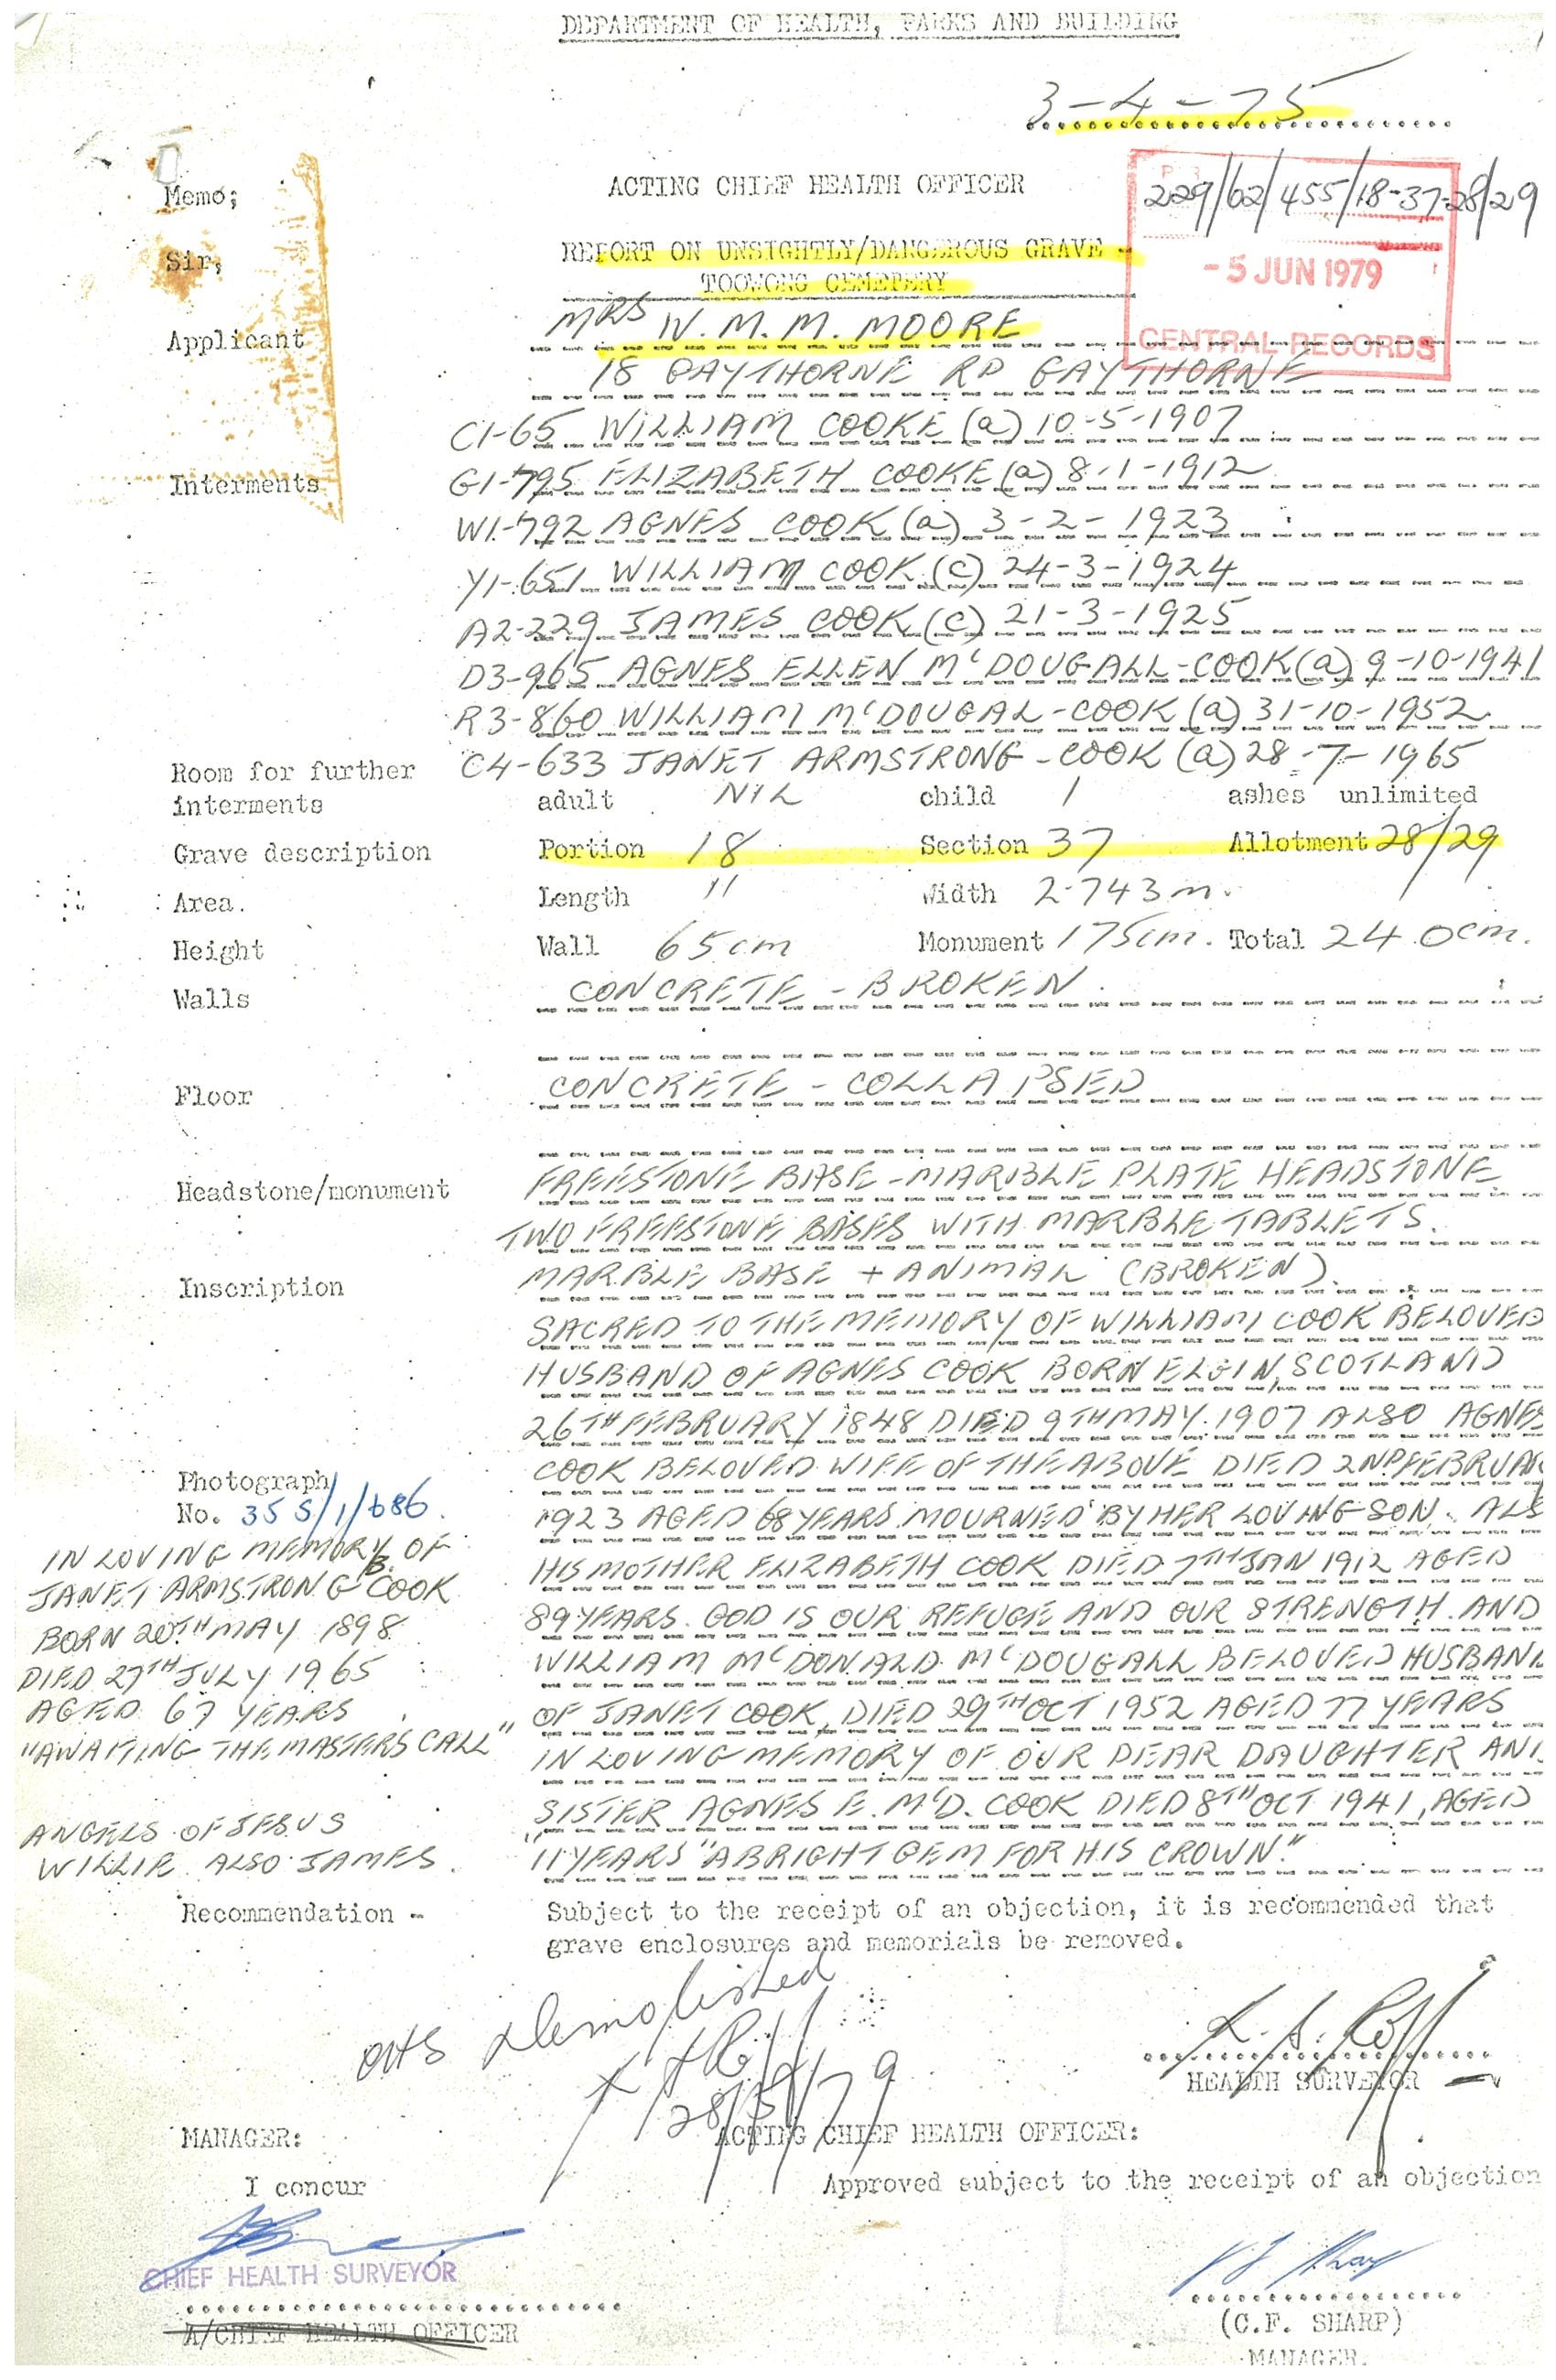 DEPARTMENT OF HEALTH, PARKS AND BUILDING
3-4-75
Memo; ACTING CHIEF HEALTH OFFICER
229/62/455/18-37-28/29
Sir, REPORT ON UNSIGHTLY/DANGEROUS GRAVE -
TOOWONG CEMETERY
- 5 JUN 1979
CENTRAL RECORDS
Applicant MRS W. M. M. MOORE
18 GAYTHORNE RD GAYTHORNE
C1-65 WILLIAM COOKE (a) 10-5-1907
Interments G1-795 ELIZABETH COOKE (a) 8-1-1912
W1-792 AGNES COOK (a) 3-2-1923
Y1-651 WILLIAM COOK (c) 24-3-1924
A2-229 JAMES COOK (c) 21-3-1925
D3-965 AGNES ELLEN McDOUGALL-COOK (a) 9-10-1941
R3-860 WILLIAM McDOUGAL-COOK (a) 31-10-1952
C4-633 JANET ARMSTRONG-COOK (a) 28-7-1965
Room for further
interments adult NIL child 1 ashes unlimited
Grave description Portion 18 Section 37 Allotment 28/29
Area. Length " Width 2.743m.
Height Wall 65cm Monument 175cm. Total 240cm.
Walls CONCRETE - BROKEN.
Floor CONCRETE - COLLAPSED
Headstone/monument FREESTONE BASE - MARBLE PLATE HEADSTONE
TWO FREESTONE BASES WITH MARBLE TABLETS.
Inscription MARBLE BASE + ANIMAL (BROKEN).
SACRED TO THE MEMORY OF WILLIAM COOK BELOVED
HUSBAND OF AGNES COOK BORN ELGIN, SCOTLAND
26TH FEBRUARY 1848 DIED 9TH MAY 1907 ALSO AGNES
COOK BELOVED WIFE OF THE ABOVE DIED 2ND FEBRUAR
1923 AGED 68 YEARS MOURNED BY HER LOVING SON. ALS
HIS MOTHER ELIZABETH COOK DIED 7TH JAN 1912 AGED
89 YEARS. GOD IS OUR REFUGE AND OUR STRENGTH. AND
WILLIAM McDONALD McDOUGALL BELOVED HUSBAND
OF JANET COOK, DIED 29TH OCT 1952 AGED 77 YEARS
IN LOVING MEMORY OF OUR DEAR DAUGHTER AND
SISTER AGNES E. McD. COOK DIED 8TH OCT 1941, AGED
11 YEARS "A BRIGHT GEM FOR HIS CROWN."
Photograph
No. 355/1/686.
IN LOVING MEMORY OF
JANET ARMSTRONG B. COOK
BORN 20TH MAY 1898
DIED 27TH JULY 1965
AGED 67 YEARS
"AWAITING THE MASTERS CALL"
ANGELS OF JESUS
WILLIE ALSO JAMES.
Recommendation - Subject to the receipt of an objection, it is recommended that
grave enclosures and memorials be removed.
Demolished
HEALTH SURVEYOR
MANAGER: ACTING CHIEF HEALTH OFFICER:
I concur Approved subject to the receipt of an objection
CHIEF HEALTH SURVEYOR
A/CHIEF HEALTH OFFICER (C.F. SHARP)
MANAGER.